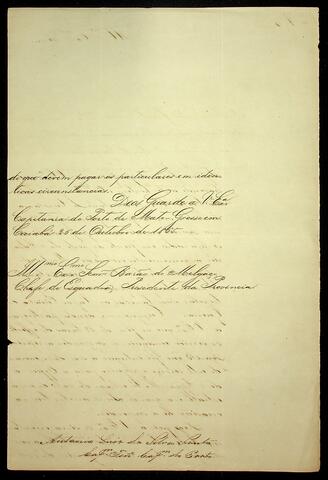 do que devem pagar os particulares em iden-
ticas circunstancias.
Deos Guarde a V. Exª
Capitania do Porto de Mato-Grosso em
Cuiabá 25 de Outubro de 1865.
Illmo Exmo
Snr Barão de Melgaço
Chefe de Esquadra, Presidente da Provincia
da Silva
do Porto